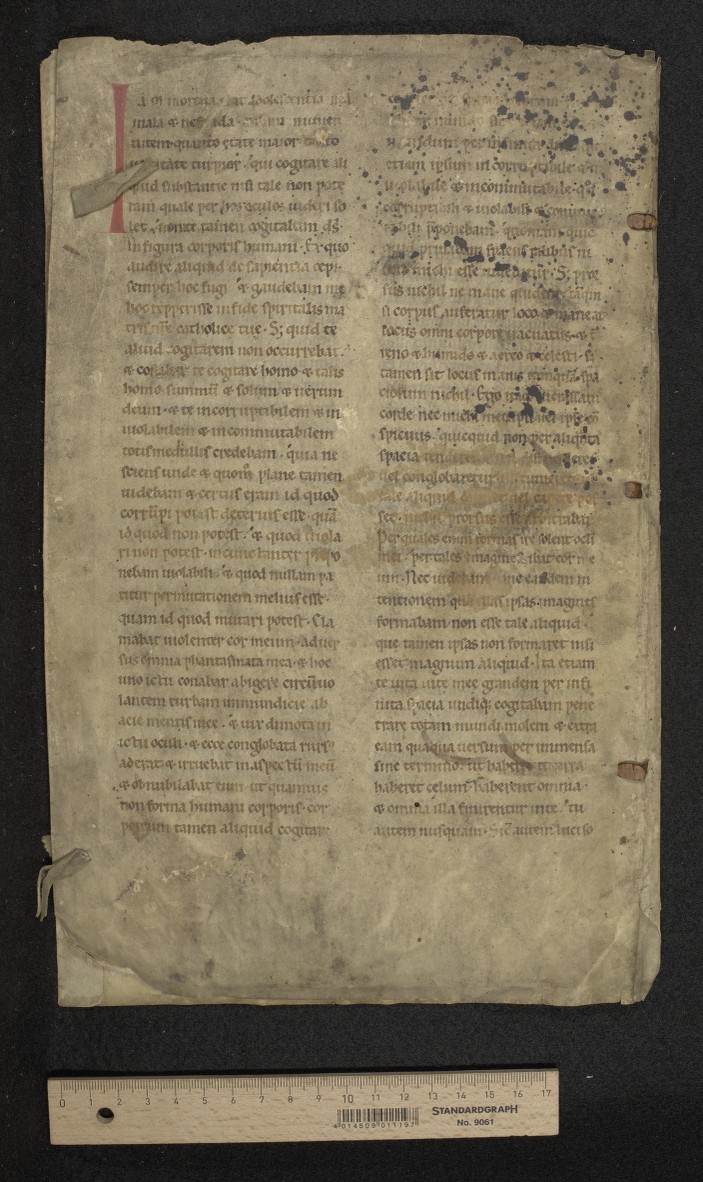 Iā mortua erat adolescentia mea
mala & nefanda & ibam in iuuen
tutem quanto etate maior tanto
uanitate turpior qui cogitare ali
quid substantie nisi tale non pote
ram quale per hos oculos uideri so
let. Non te tamen cogitabam ds̄
in figura corporis humani. Ex quo
audire aliquid de sapientia cepi
semper hoc fugi & gaudebam me
hoc repperisse in fide spiritalis ma
tris nr̄e catholice tue. S; quid te
aliud cogitarem non occurrebat.
& conabar te cogitare homo & talis
homo summū & solum & uerum
deum. & te incorruptibilem & in
uiolabilem & incommutabilem
totis medullis credebam. quia ne
sciens unde & quom̄ plane tamen
uidebam & certus eram id quod
corrūpi potest deterius esse quā
id quod non potest. & quod uiola
ri non potest incunctanter prepo
nebam uiolabili. & quod nullam pa
titur permutationem melius esse
quam id quod mutari potest. Cla
mabat uiolenter cor meum aduer
sus omnia phantasmata mea & hoc
uno ictu conabar abigere circūuo
lantem turbam inmundicie ab
acie mentis mee. & uix dimota in
ictu oculi & ecce conglobata rurs'
aderat & irruebat in aspectū meū
& obnubilabat eum ut quamuis
non forma humani corporis cor
poreum tamen aliquid cogitare
etiam ipsum incorruptibile & in
uiolabile & incommutabile qd̄
corruptibili & uiolabili & commu
tabili p̄ponebam quoniam quic
quid priuabam spaciis talibus ni
chil michi esse uidebatur. S; pror
sus nichil ne inane quidem tāqm
si corpus auferatur loco & maneat
locus omni corpore uacuatus & t̄
reno & humido & aereo & celesti. s;
tamen sit locus inanis tamquā spa
ciosum nichil. Ergo itaq; incrassatus
corde nec michimet ipsi uel ipse cō
spicuus quicquid non per aliquāta
spacia tenderetur
uel conglobaretur
tale aliquid caperet
set nichil prorsus esse arbitrabar.
Per quales enim formas ire solent ocli
mei per tales imagines ibat cor me
um. Nec uidebam hanc eandem in
tentionem qua illas ipsas imagines
formabam non esse tale aliquid
que tamen ipsas non formaret nisi
esset magnum aliquid. Ita etiam
te uita uite mee grandem per infi
nita spacia undiq; cogitabam pene
trare totam mundi molem & extra
eam quaqua uersum per inmensa
sine termino. ut haberet te terra
haberet celum haberent omnia
& omnia illa finirentur in te. tu
autem nusquam. Sic̄ autem luci so
0 1 2 3 4 5 6 7 8 9 10 11 12 13 14 15 16 17
4 014509 011197
STANDARDGRAPH
No. 9061